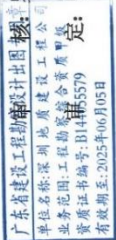 广东省建设工程勘察设计出图
单位名称:深圳地质建设工程公司
业务范围:工程勘察综合资质甲
资质证书编号:B144055579
有效期至:2025年06月05日
核:
审
定: